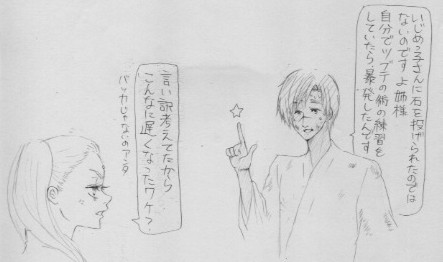 いじめっ子さんに石を投げられたのでは
ないのですよ姉様
自分でツブテの術の練習を
していたら暴発したんです
言い訳考えてたから
こんなに遅くなったワケ?
バッカじゃないのアンタ